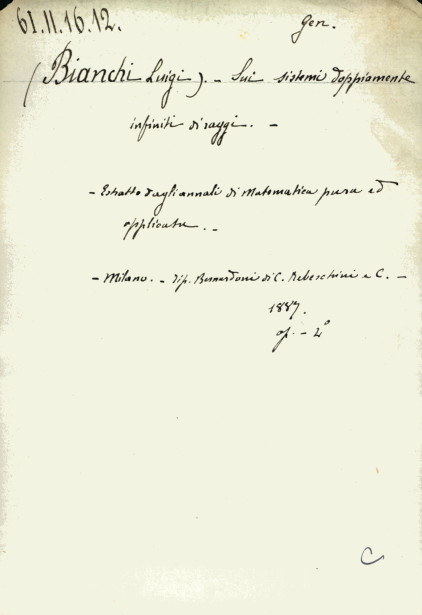 61.II.16.12.
Gen.
(Bianchi Luigi). - Sui sistemi doppiamente
infiniti di raggi. -
- Estratto dagli annali di Matematica pura ed
applicata. -
- Milano. - Tip. Bernardoni di C. Rebeschini e C. -
1887.
op. - 4°
C